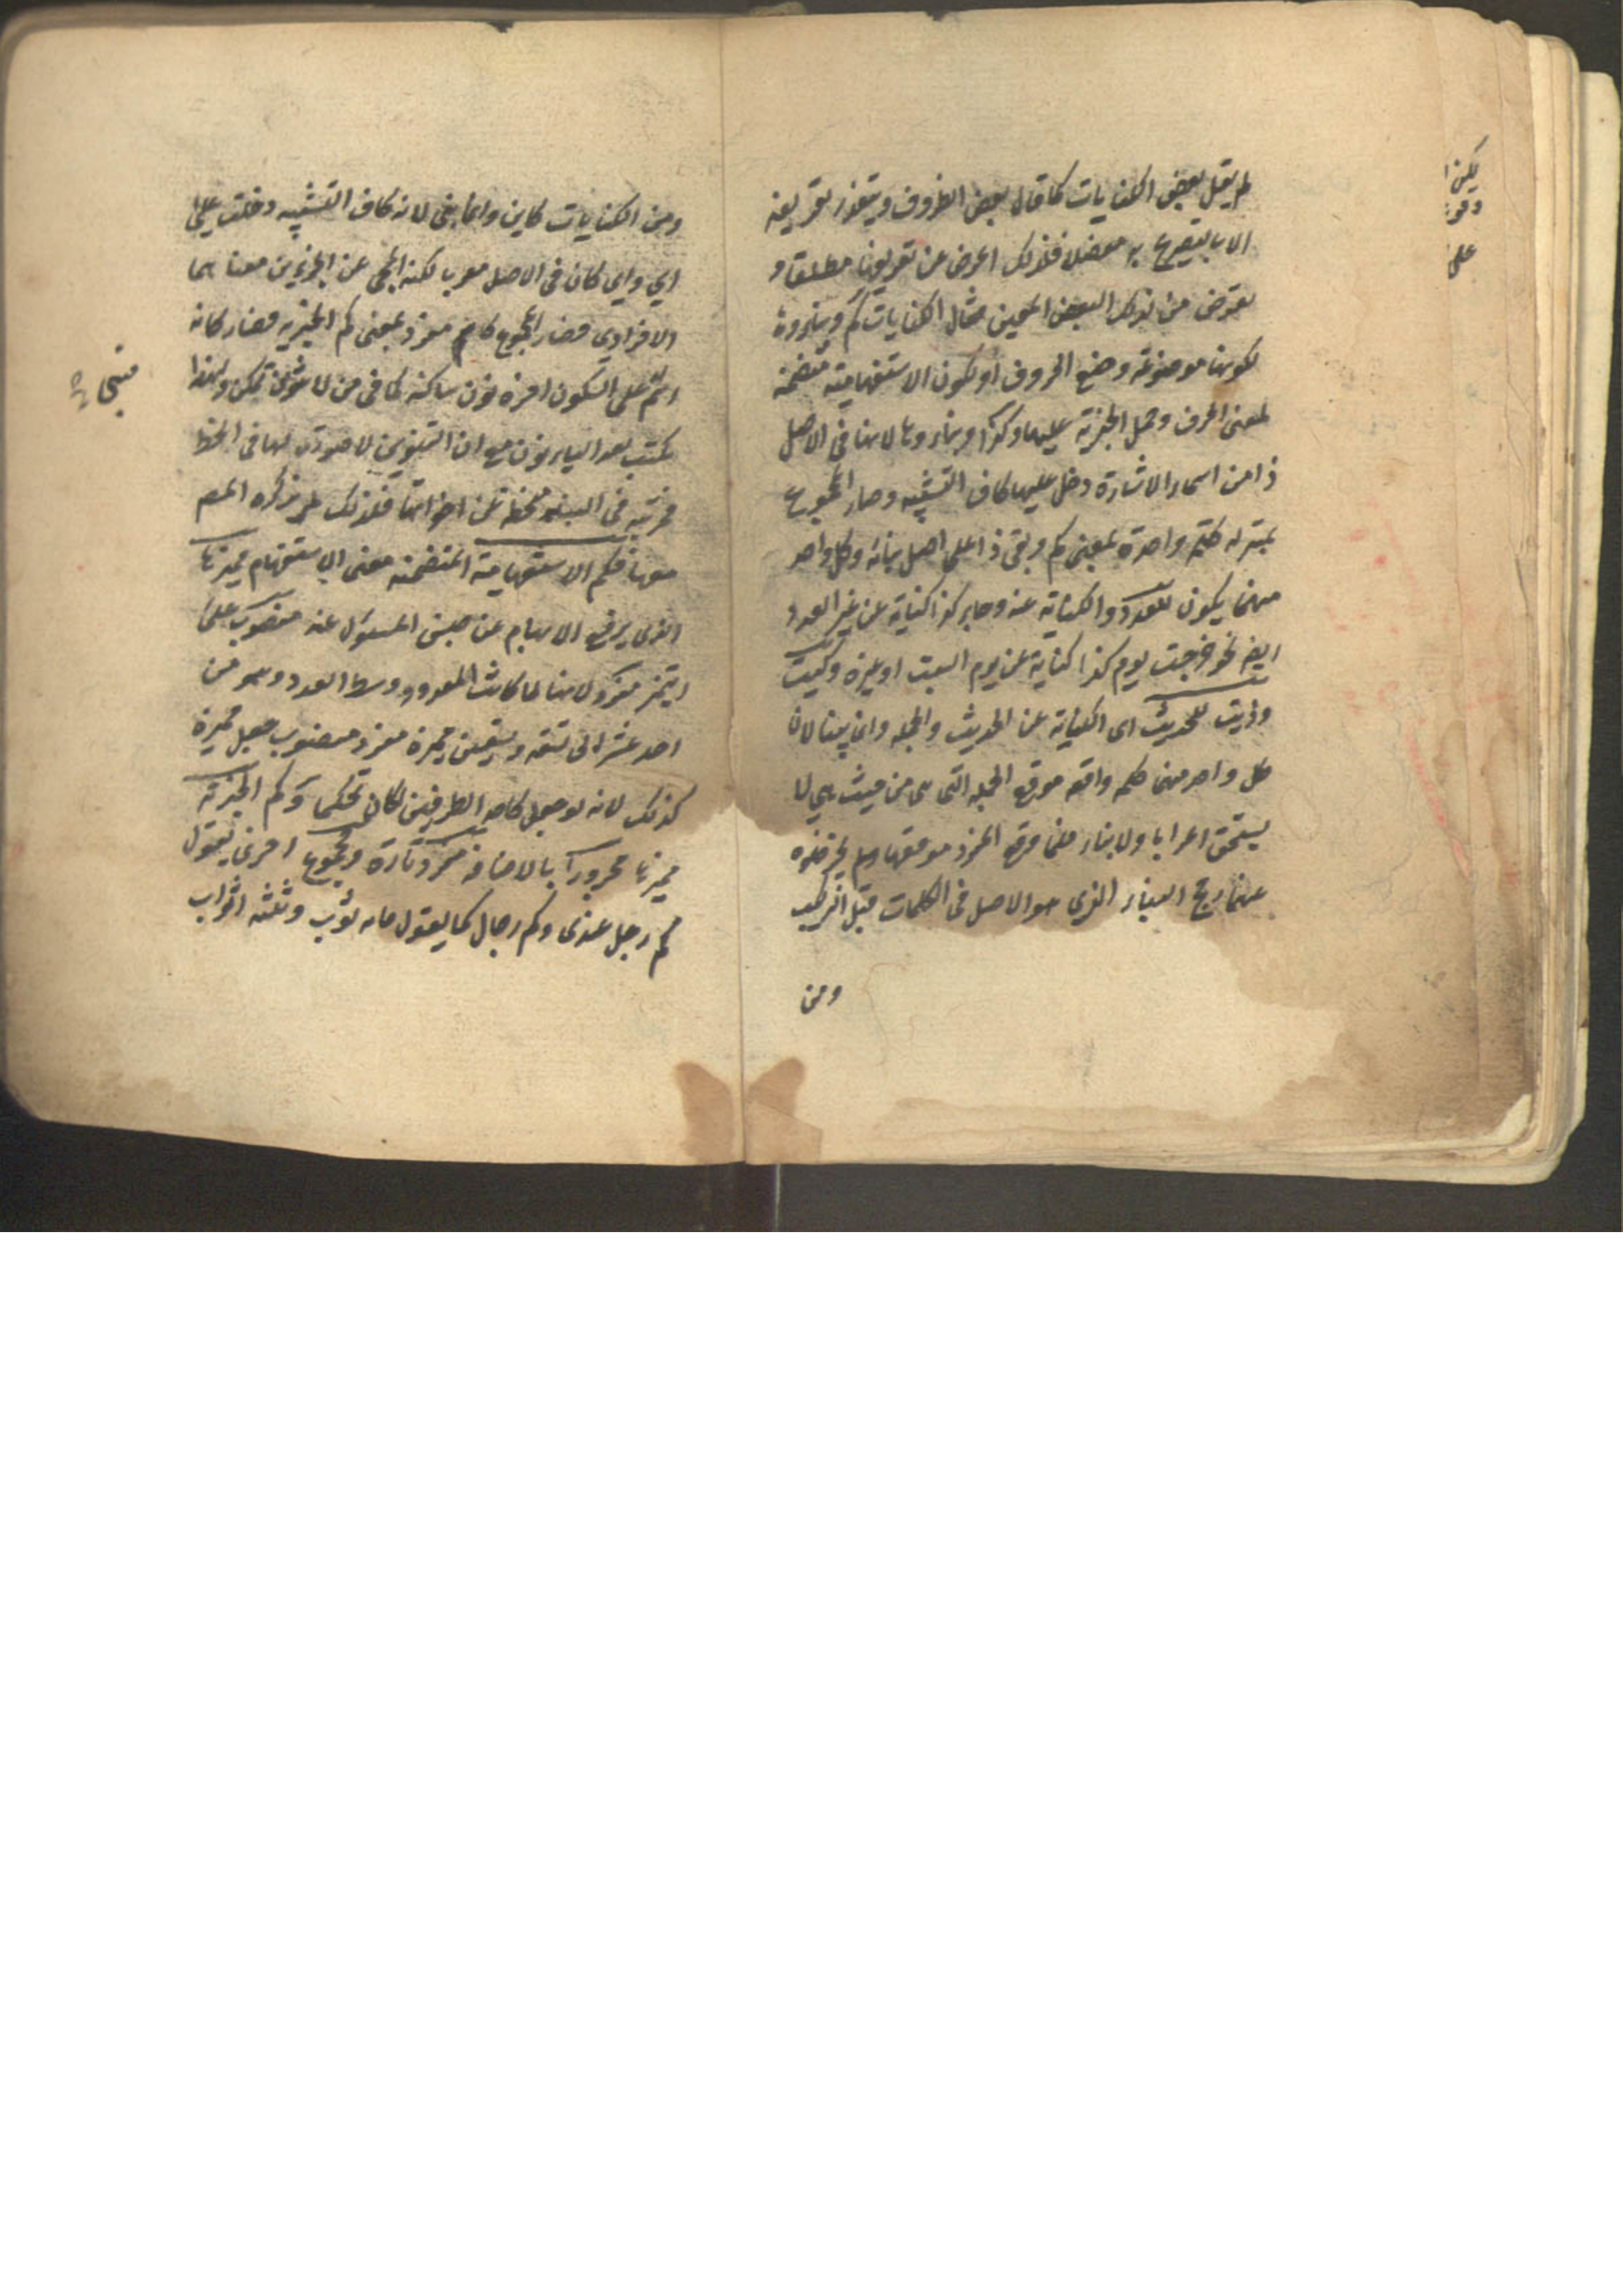 لم يقل بعض الكنايات كما قال بعض الظروف ويتعذر تعريفه
الا بالتصريح به مفصلا فلذلك اعرض عن تعريفها مطلقا و
تعرض من لذلك البعض المعين فقال الكنايات كم وبناءوه
لكونها موضوعة وضع الحروف او لكون الاستفهامية متضمنة
لمعنى الحرف وحمل الخبرية عليها وكذا وبناءوها لانها في الاصل
ذا من اسماء الاشارة دخل عليها كاف التشبيه وصار المجموع
بمنزلة كلمة واحدة بمعنى كم وبقى ذا على اصل بنائه وكل واحد
منهما يكون للعدد والكناية عنه وجاء كذا كناية عن غير العدد
ايضا نحو خرجت يوم كذا كناية عن يوم السبت او غيره وكيت
وذيت للحديث اى الكناية عن الحديث والجملة وانما بنيا لان
كل واحد منهما كلمة واقعة موقع الجملة التى هى من حيث هي لا
يستحق اعرابا ولا بناء فلما وقع المفرد موقعها ولم يجز خلوه
عنهما رجح البناء الذي هو الاصل فى الكلمات قبل التركيب
ومن
ومن الكنايات كاين وانما بنى لانه كاف التشبيه دخلت على
اي واي كان فى الاصل معربا لكنه انمحى عن الجزءين معناهما
الافرادى فصار المجموع كاسم مفرد بمعنى كم الخبرية فصار كانه
اسم على السكون اخره نون ساكنة كما فى من لا تنوين تمكن ولهذا
يكتب بعد الياء نون مع ان التنوين لا صورة لها فى الخط
فمرتبته فى البناء منحطة عن اخواتها فلذلك لم يذكره المص
معها فكم الاستفهامية المتضمنة معنى الاستفهام مميزها
الذى يرفع الابهام عن جنس المسئول عنه منصوب على
التميز مفرد لانها لما كانت للعدد ووسط العدد وهو من
احد عشر الى تسعة وتسعين مميزه مفرد منصوب جعل مميزه
كذلك لانه لو جعل كاحد الطرفين لكان تحكما وكم الخبرية
مميزها مجرورا بالاضافة مفرد تارة ومجموع اخرى تقول
كم رجل عندى وكم رجال كما يقول مائة ثوب وثلثة اثواب
على